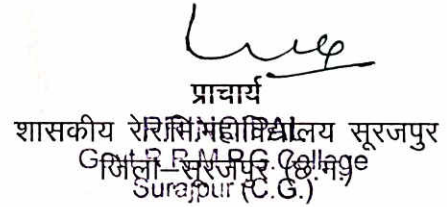 प्राचार्य
शासकीय रे.रा.मि.महाविद्यालय सूरजपुर
PRINCIPAL
जिला-सूरजपुर (छ.ग.)
Govt. R.R.M.P.G. College
Surajpur (C.G.)